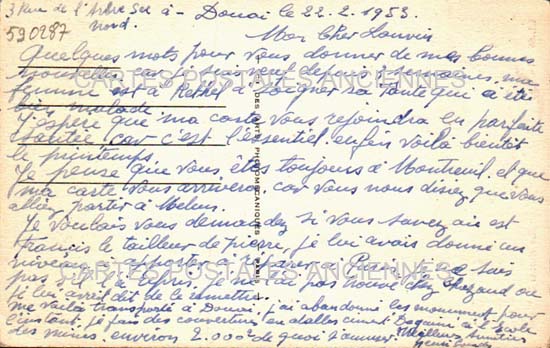 3 Rue de l'Arbre Sec à - Douai le 22.2.1953.
Nord.
590287
Mon cher Louvin
Quelques mots pour vous donner de mes bonnes
nouvelles car je suis seul depuis semaines, ma
femme est à Rethel soigner sa tante qui a été
bien malade.
CARTES POSTALES ANCIENNES
J'espère que ma carte vous rejoindra en parfaite
santée car c'est l'essentiel enfin voilà bientôt
le printemps.
Je pense que vous êtes toujours à Montreuil et que
ma carte vous arrivera car vous nous disiez que vous
alliez partir à Melun.
Je voulais vous demandez si vous savez où est
Francis le tailleur de pierre, je lui avais donné un
niveau apporter à réparer. Pourriez je sais
CARTES POSTALES ANCIENNES
pas s'il l'a repris, je ne l'ai pas trouvé chez ou
je lui avait dit de le remettre.
me voilà transporté à Douai, j'ai abandonné les monument pour
l'instant, je fais des couvertures en dalles ciment à l'école
des mines environ 2.000² de quoi s'amuser. Meilleures amitiés
PHOTOMECANIQUES